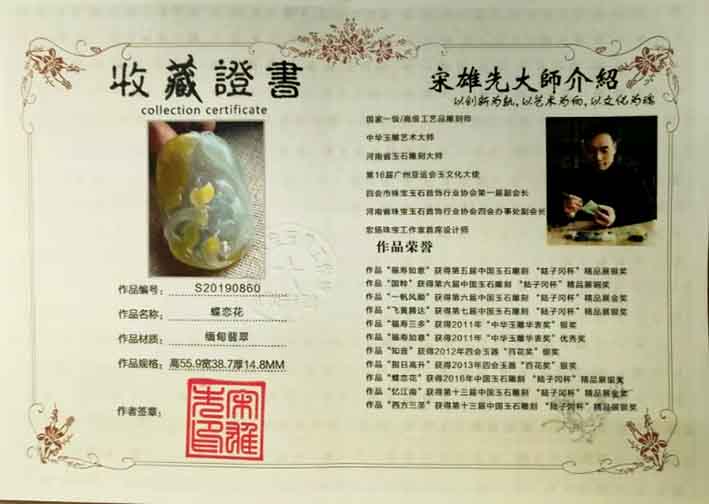 收藏證書
collection certificate
作品编号: S20190860
作品名称: 蝶恋花
作品材质: 缅甸翡翠
作品规格: 高55.9宽38.7厚14.8MM
作者签章:
宋雄先印
宋雄先大師介紹
以创新为轨,以艺术为向,以文化为魂
国家一级/高级工艺品雕刻师
中华玉雕艺术大师
河南省玉石雕刻大师
第16届广州亚运会玉文化大使
四会市珠宝玉石首饰行业协会第一届副会长
河南省珠宝玉石首饰行业协会四会办事处副会长
宏扬珠宝工作室首席设计师
作品荣誉
作品“福寿如意”获得第五届中国玉石雕刻 “陆子冈杯”精品展银奖
作品“国粹”获得第六届中国玉石雕刻 “陆子冈杯”精品展铜奖
作品“一帆风顺”获得第六届中国玉石雕刻 “陆子冈杯”精品展金奖
作品“飞黄腾达”获得第七届中国玉石雕刻 “陆子冈杯”精品展银奖
作品“福寿三多”获得2011年“中华玉雕华表奖”银奖
作品“福寿如意”获得2011年“中华玉雕华表奖”优秀奖
作品“知音”获得2012年四会玉器“百花奖”银奖
作品“指日高升”获得2013年四会玉器“百花奖”银奖
作品“蝶恋花”获得2016年中国玉石雕刻 “陆子冈杯”精品展银奖
作品“忆江南”获得第十三届中国玉石雕刻 “陆子冈杯”精品展金奖
作品“西方三圣”获得第十三届中国玉石雕刻 “陆子冈杯”精品展银奖